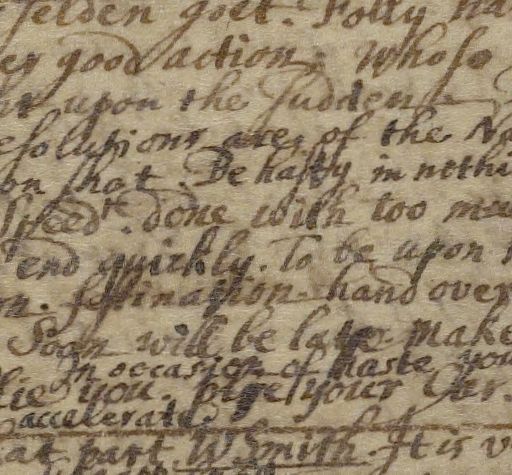 felden goet. Folly ha
ey good action. Whoso
upon the sudden
esolutions are of the Na
on shot. Be hasty in nothi
Speed. done with too mu
end quickly. To be upon
on. festination. hand over
Soon will be late. make
In occasion of haste you
lie you. plye your Oar.
accelerate.
at part. WSmith. It is v